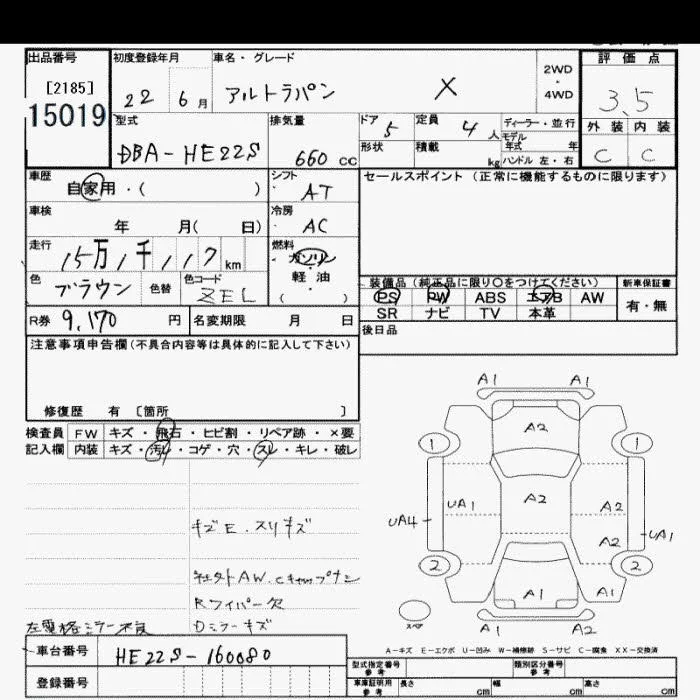 出品番号 初度登録年月 車名・グレード 2WD・4WD 評価点
[2185]
15019
22 6月 アルトラパン X 3.5
型式 排気量 ドア 5 定員 4人 ディーラー・並行 外装 内装
モデル年式 年
DBA-HE22S 660cc 形状 積載 kg ハンドル 左・右 C C
車歴 自家用・( ) シフト AT セールスポイント(正常に機能するものに限ります)
車検 年 月( 日) 冷房 AC
走行 15万1千117km 燃料 ガソリン・軽油 ( )
色 ブラウン 色替 色コード ZEL
装備品(純正品に限り〇をつけてください) 新車保証書
PS PW ABS エアB AW 有・無
SR ナビ TV 本革
R券 9,170円 名変期限 月 日 後日品
注意事項申告欄(不具合内容等は具体的に記入して下さい)
修復歴 有 〔箇所 〕
検査員 FW キズ・飛石・ヒビ割・リペア跡・×要
記入欄 内装 キズ・汚れ・コゲ・穴・スレ・キレ・破レ
キズE.スリキズ
社外AW.Cキャップナシ
Rワイパー欠
左電格ミラー不良 Dミラーキズ
A1 A1
A2
1 1
UA1 A2 A2
UA4 UA1
A2
2 2
A1 A1
スペア A1 A2
A-キズ E-エクボ U-凹み W-補修跡 S-サビ C-腐食 XX-交換済
車台番号 HE22S-160080
登録番号
型式指定番号 参考 類別区分番号 参考
車庫証明用 参考 長さ cm 幅 cm 高さ cm